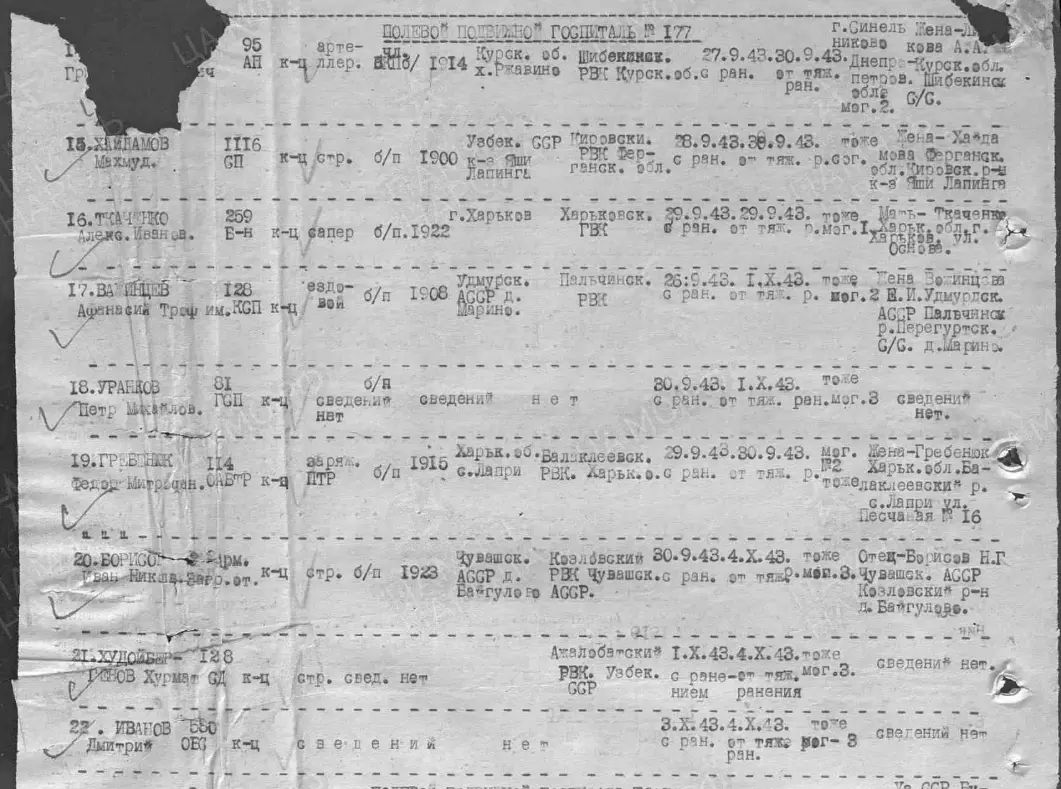 ПОЛЕВОЙ ПОДВИЖНОЙ ГОСПИТАЛЬ № 177
95 арте- чл. Курск. об. Шибекинск. 27.9.43.30.9.43. г.Синель Жена-
АП к-ц ллер. 1914 х.Ржавино РВК Курск.об.с ран. от тяж. ран. никово кова А.А.
Днепро-Курск.обл.
петров. Шибекинск
обл. С/С.
мог.2.
15.ХАЙДАМОВ 1116 Узбек. ССР Кировски. 28.9.43.30.9.43. тоже Жена- Хайда
Махмуд. СП к-ц стр. б/п 1900 к-з Яши РВК Фер- с ран. от тяж. р.мог. мова Ферганск.
Лапинга ганск. обл. обл.Кировск.р-н
к-з Яши Лапинга
16.ТКАЧЕНКО 259 г.Харьков Харьковск. 29.9.43.29.9.43. тоже Мать- Ткаченко
Алекс.Иванов. Б-н к-ц сапер б/п.1922 ГВК с ран. от тяж. р.мог.1.Харьк.обл.г.
Харьков. ул.
Основа.
17.ВАЖИНЦЕВ 128 ездо- б/п 1908 Удмурск. Пальчинск. 26.9.43. 1.X.43. тоже Жена
Афанасий Трофим.КСП к-ц вой АССР д. РВК с ран. от тяж. р. мог.2 Е.И.Удмурдск.
Марино. АССР Пальчинск
р.Перегуртск.
С/С. д.Марино.
18.УРАНКОВ 81 б/п 30.9.43. 1.X.43. тоже
Петр Михайлов. ГСП к-ц сведений сведений нет с ран. от тяж. ран.мог.3 сведений
нет нет.
19.ГРЕБЕНЮК 114 заряж. б/п 1915 Харьк.об.Балаклеевск. 29.9.43.30.9.43. мог. Жена-Гребенюк
Федор Митрофан.ОАБТР к-ц ПТР с.Лапри РВК. Харьк.о.с ран. от тяж. р. №2 Харьк.обл.Ба-
тоже лаклеевский р.
с.Лапри ул.
Песчаная № 16
20.БОРИСОВ Арм. Чувашск. Козловский 30.9.43.4.X.43. тоже Отец-Борисов Н.Г
Иван Никол. Загр.от. к-ц стр. б/п 1923 АССР д. РВК Чувашск.с ран. от тяж.р.мог.3.Чувашск. АССР
Байгулово АССР. Козловский р-н
д.Байгулово.
21.ХУДОЙБЕР- 128 Ажалобатский 1.X.43.4.X.43.тоже
ГЕНОВ Хурмат СД к-ц стр. свед. нет РВК. Узбек. с ране-от тяж.мог.3. сведений нет.
ССР нием ранения
22. ИВАНОВ 550 3.X.43.4.X.43. тоже
Дмитрий ОБС к-ц сведений нет с ран. от тяж. мог- 3 сведений нет
ран.